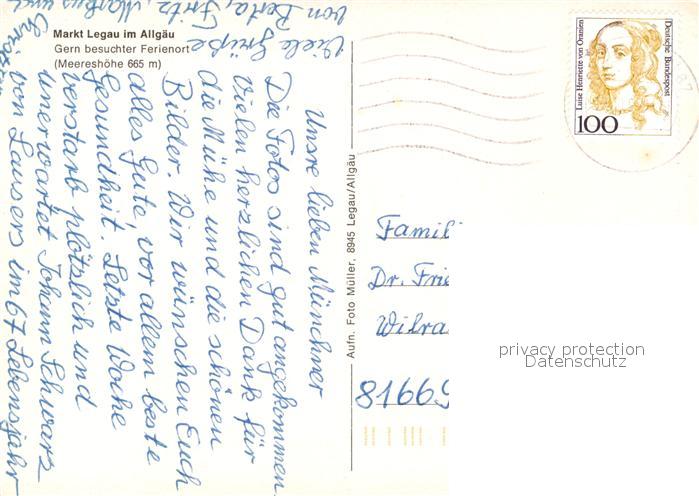 Markt Legau im Allgäu
Gern besuchter Ferienort
(Meereshöhe 665 m)
Unsre lieben Münchner
Die Fotos sind gut angekommen.
Vielen herzlichen Dank für
die Mühe und die schönen
Bilder. Wir wünschen Euch
alles Gute, vor allem beste
Gesundheit. Letzte Woche
verstarb plötzlich und
unerwartet Johann Schwarz
von Lausers im 67 Lebensjahr
Viele Grüße
von Berta, Fritz, Markus und
Aufn. Foto Müller, 8945 Legau/Allgäu
Luise Henriette von Oranien
Deutsche Bundespost
100
Famil
Dr. Frie
Wilra
81669
privacy protection
Datenschutz